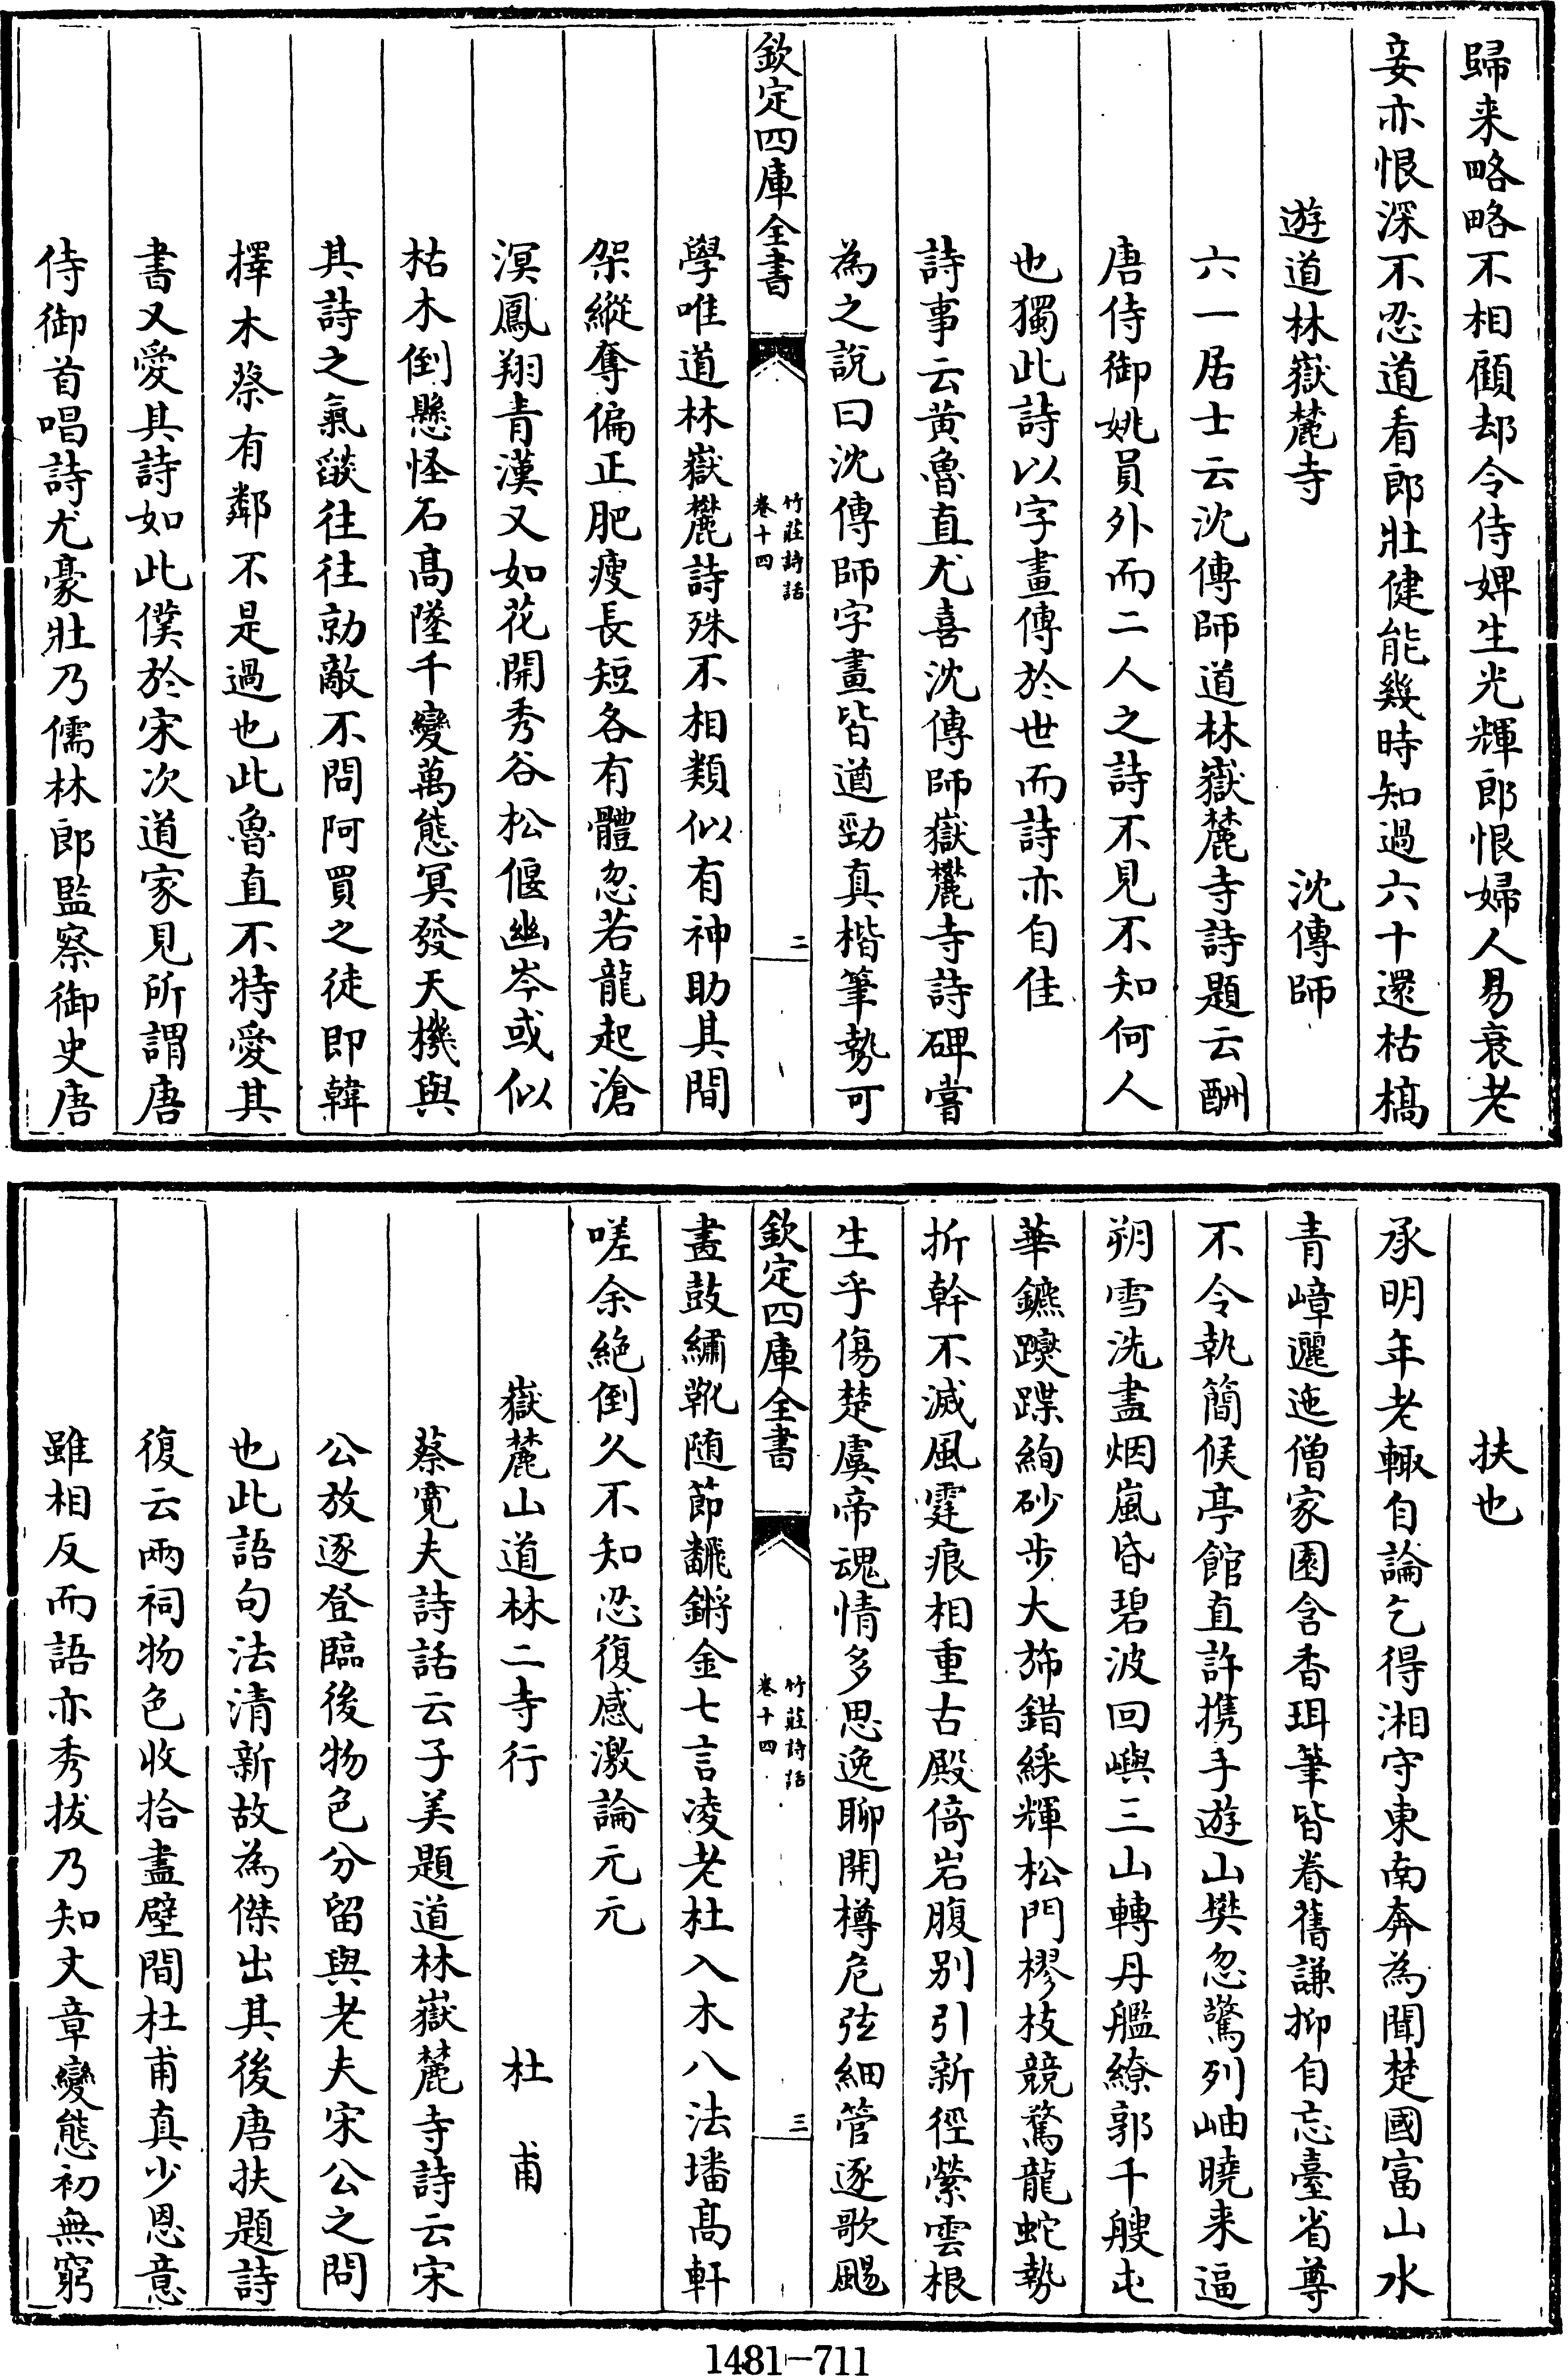 歸来略略不相顧却令侍婢生光輝郎恨婦人易衰老
妾亦恨深不忍道看郎壯健能幾時知過六十還枯槁
遊道林嶽麓寺　沈傳師
六一居士云沈傳師道林嶽麓寺詩題云酬
唐侍御姚員外而二人之詩不見不知何人
也獨此詩以字畫傳於世而詩亦自佳
詩事云黄魯直尤喜沈傳師嶽麓寺詩碑嘗
為之說曰沈傳師字畫皆遒勁真楷筆勢可
欽定四庫全書
竹莊詩話
卷十四
二
學唯道林嶽麓詩殊不相類似有神助其間
架縱奪偏正肥瘦長短各有體忽若龍起滄
溟鳳翔青漢又如花開秀谷松偃幽岑或似
枯木倒懸怪石高墜千變萬態冥發天機與
其詩之氣燄往往勍敵不問阿買之徒即韓
擇木蔡有鄰不是過也此魯直不特愛其
書又愛其詩如此僕於宋次道家見所謂唐
侍御首唱詩尤豪壯乃儒林郎監察御史唐
扶也
承明年老輙自論乞得湘守東南奔為聞楚國富山水
青嶂邐迤僧家園含香珥筆皆眷舊謙抑自忘臺省尊
不令執簡候亭館直許携手遊山樊忽驚列岫曉来逼
朔雪洗盡烟嵐昏碧波回嶼三山轉丹艦繚郭千艘屯
華鑣躞蹀絢砂步大斾錯綵輝松門樛枝競騖龍蛇勢
折幹不滅風霆痕相重古殿倚岩腹别引新徑縈雲根
生乎傷楚虞帝魂情多思逸聊開樽危弦細管逐歌颺
欽定四庫全書
竹莊詩話
卷十四
三
畫鼓繡靴随節飜鏘金七言凌老杜入木八法墦高軒
嗟余絶倒久不知忍復感激論元元
嶽麓山道林二寺行　杜甫
蔡寛夫詩話云子美題道林嶽麓寺詩云宋
公放逐登臨後物色分留與老夫宋公之問
也此語句法清新故為傑出其後唐扶題詩
復云兩祠物色收拾盡壁間杜甫真少恩意
雖相反而語亦秀拔乃知文章變態初無窮
1481-711